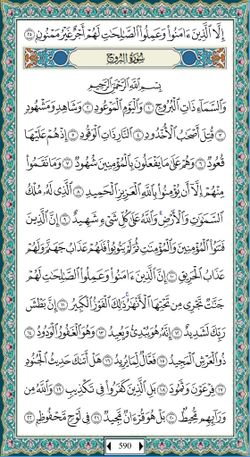 إِلَّا الَّذِينَ ءَامَنُوا وَعَمِلُوا الصَّٰلِحَٰتِ لَهُمْ أَجْرٌ غَيْرُ مَمْنُونٍ ٢٥
سُورَةُ البُرُوجِ
بِسْمِ اللَّهِ الرَّحْمَٰنِ الرَّحِيمِ
وَالسَّمَاءِ ذَاتِ الْبُرُوجِ ١ وَالْيَوْمِ الْمَوْعُودِ ٢ وَشَاهِدٍ وَمَشْهُودٍ
٣ قُتِلَ أَصْحَٰبُ الْأُخْدُودِ ٤ النَّارِ ذَاتِ الْوَقُودِ ٥ إِذْ هُمْ عَلَيْهَا
قُعُودٌ ٦ وَهُمْ عَلَىٰ مَا يَفْعَلُونَ بِالْمُؤْمِنِينَ شُهُودٌ ٧ وَمَا نَقَمُوا
مِنْهُمْ إِلَّا أَن يُؤْمِنُوا بِاللَّهِ الْعَزِيزِ الْحَمِيدِ ٨ الَّذِي لَهُ مُلْكُ
السَّمَٰوَٰتِ وَالْأَرْضِ وَاللَّهُ عَلَىٰ كُلِّ شَيْءٍ شَهِيدٌ ٩ إِنَّ الَّذِينَ
فَتَنُوا الْمُؤْمِنِينَ وَالْمُؤْمِنَٰتِ ثُمَّ لَمْ يَتُوبُوا فَلَهُمْ عَذَابُ جَهَنَّمَ وَلَهُمْ
عَذَابُ الْحَرِيقِ ١٠ إِنَّ الَّذِينَ ءَامَنُوا وَعَمِلُوا الصَّٰلِحَٰتِ لَهُمْ
جَنَّٰتٌ تَجْرِي مِن تَحْتِهَا الْأَنْهَٰرُ ذَٰلِكَ الْفَوْزُ الْكَبِيرُ ١١ إِنَّ بَطْشَ
رَبِّكَ لَشَدِيدٌ ١٢ إِنَّهُ هُوَ يُبْدِئُ وَيُعِيدُ ١٣ وَهُوَ الْغَفُورُ الْوَدُودُ ١٤
ذُو الْعَرْشِ الْمَجِيدُ ١٥ فَعَّالٌ لِّمَا يُرِيدُ ١٦ هَلْ أَتَىٰكَ حَدِيثُ الْجُنُودِ
١٧ فِرْعَوْنَ وَثَمُودَ ١٨ بَلِ الَّذِينَ كَفَرُوا فِي تَكْذِيبٍ ١٩ وَاللَّهُ مِن
وَرَائِهِم مُّحِيطٌ ٢٠ بَلْ هُوَ قُرْءَانٌ مَّجِيدٌ ٢١ فِي لَوْحٍ مَّحْفُوظٍ ٢٢
590